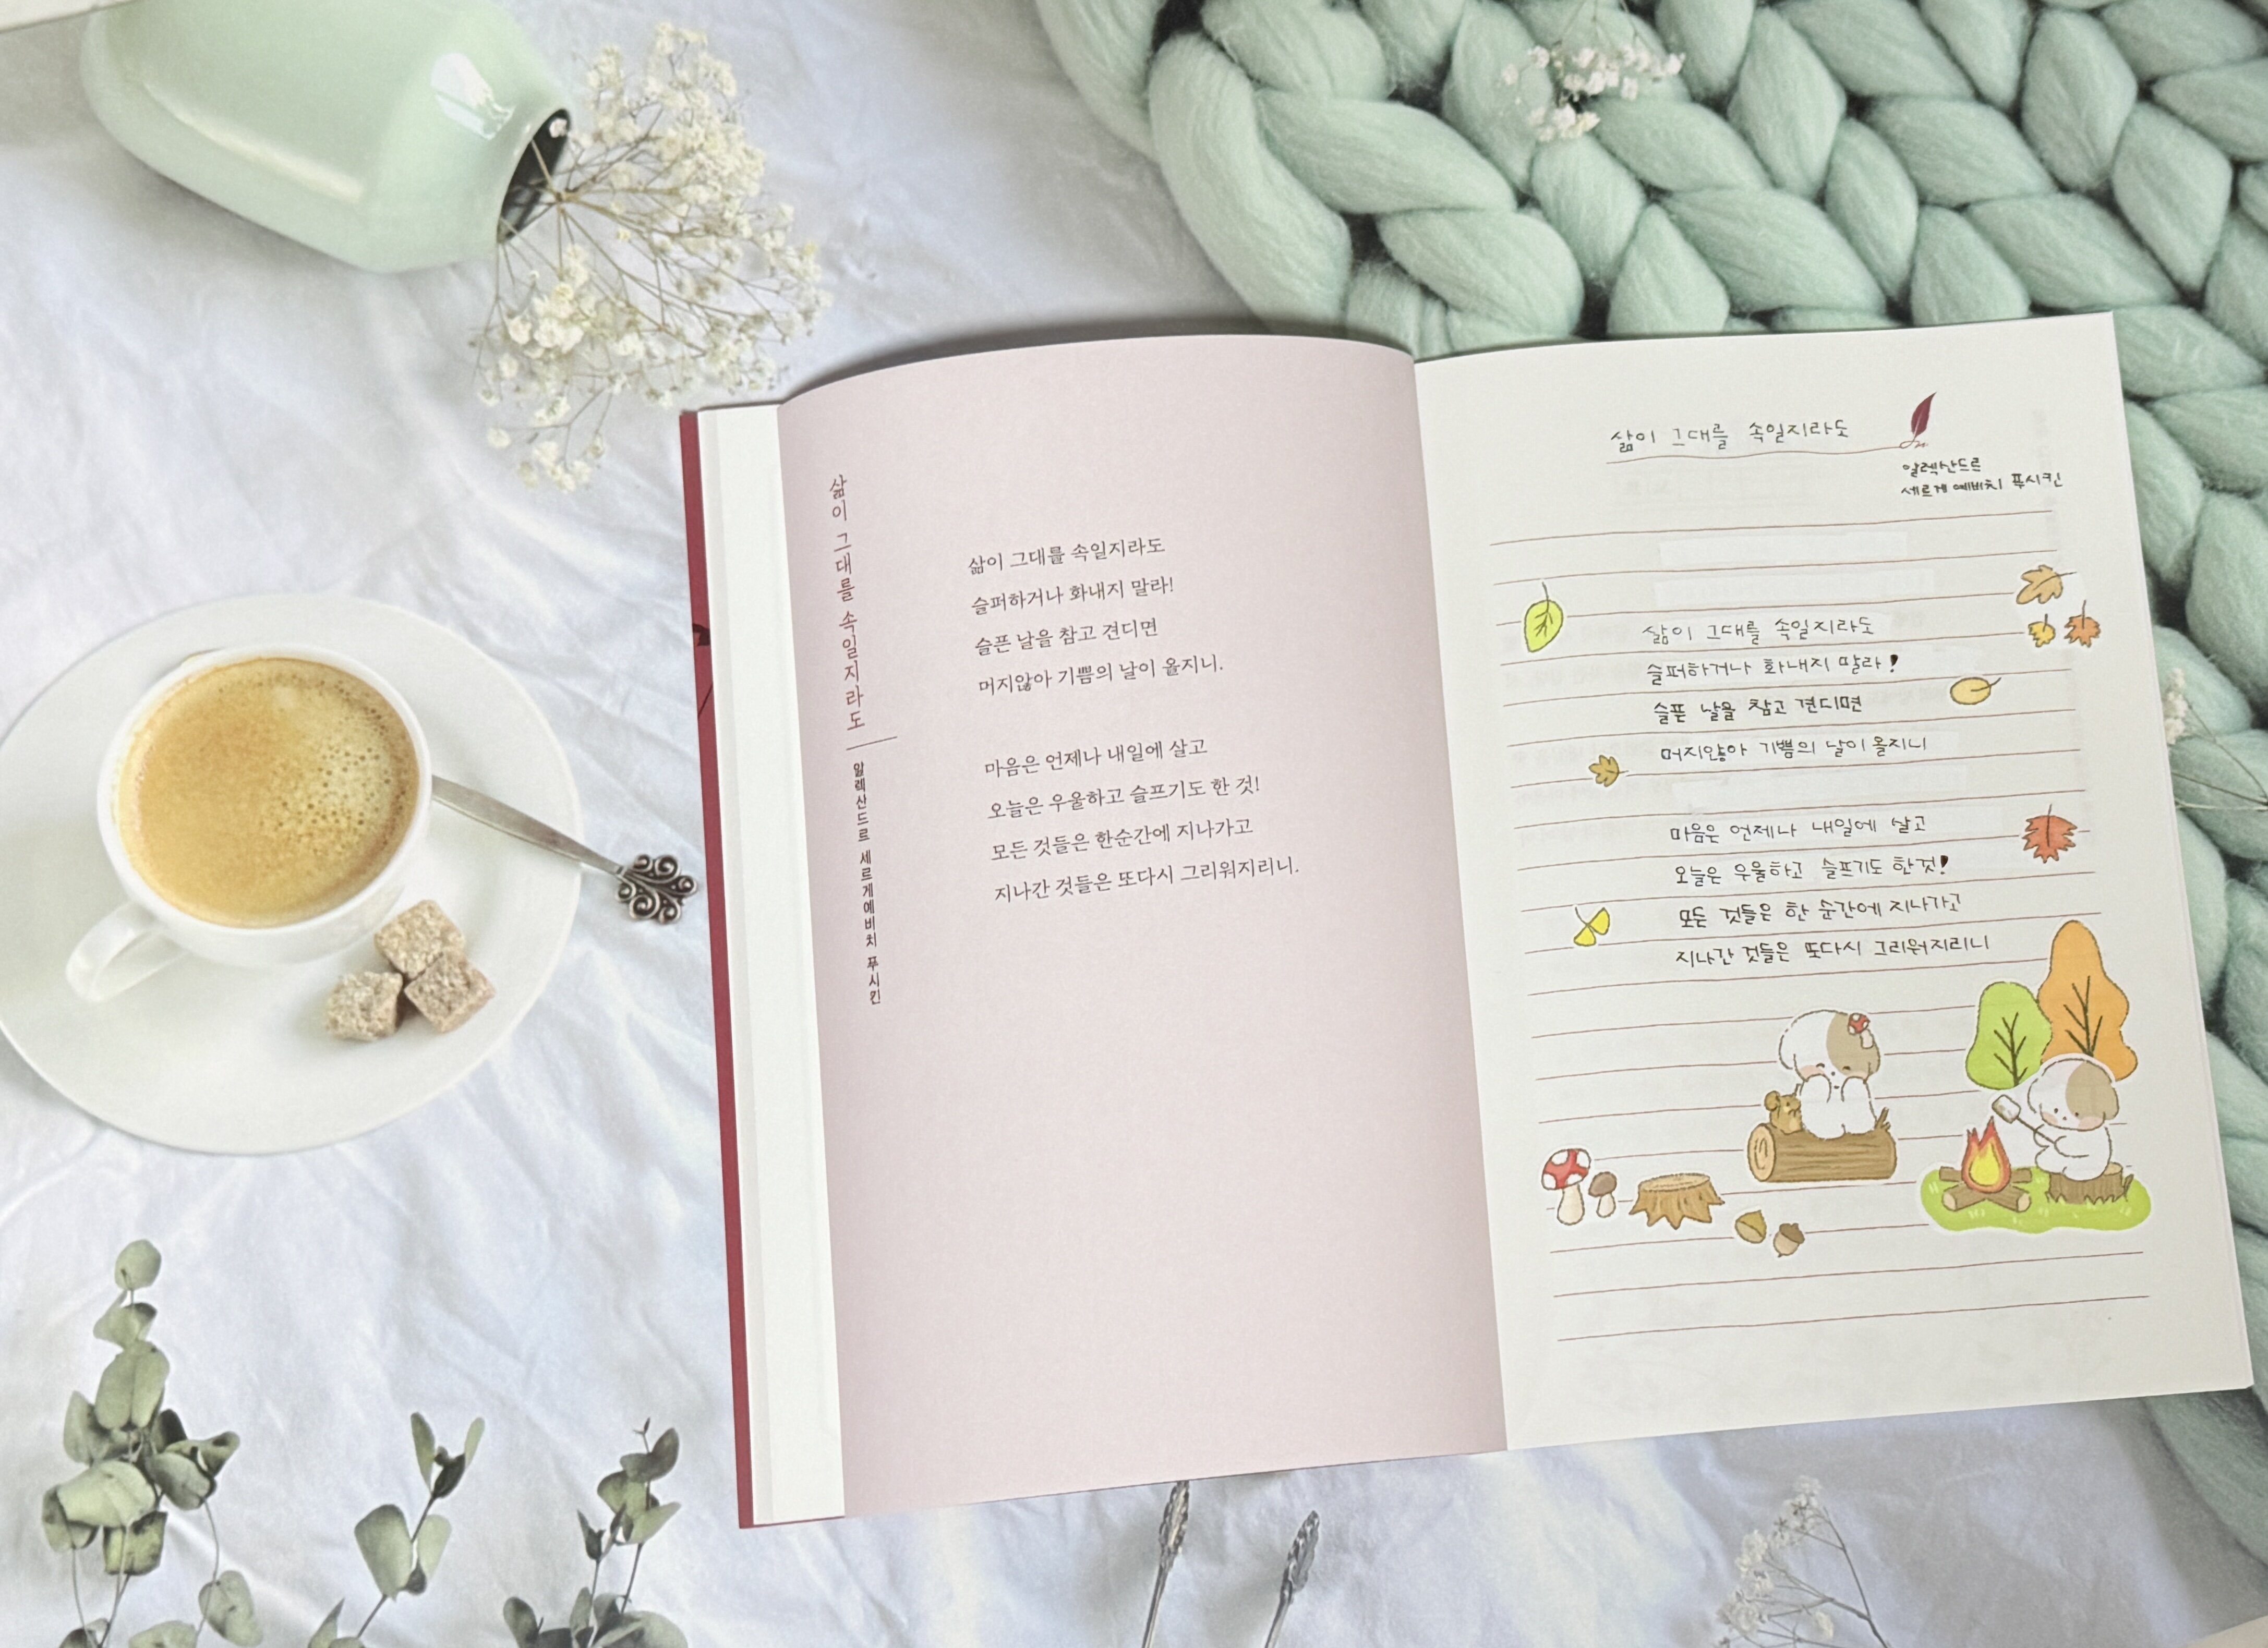 삶이 그대를 속일지라도
알렉산드르 세르게예비치 푸시킨
삶이 그대를 속일지라도
슬퍼하거나 화내지 말라!
슬픈 날을 참고 견디면
머지않아 기쁨의 날이 올지니.
마음은 언제나 내일에 살고
오늘은 우울하고 슬프기도 한 것!
모든 것들은 한순간에 지나가고
지나간 것들은 또다시 그리워지리니.
삶이 그대를 속일지라도
알렉산드르
세르게예비치 푸시킨
삶이 그대를 속일지라도
슬퍼하거나 화내지 말라!
슬픈 날을 참고 견디면
머지않아 기쁨의 날이 올지니
마음은 언제나 내일에 살고
오늘은 우울하고 슬프기도 한것!
모든 것들은 한 순간에 지나가고
지나간 것들은 또다시 그리워지리니